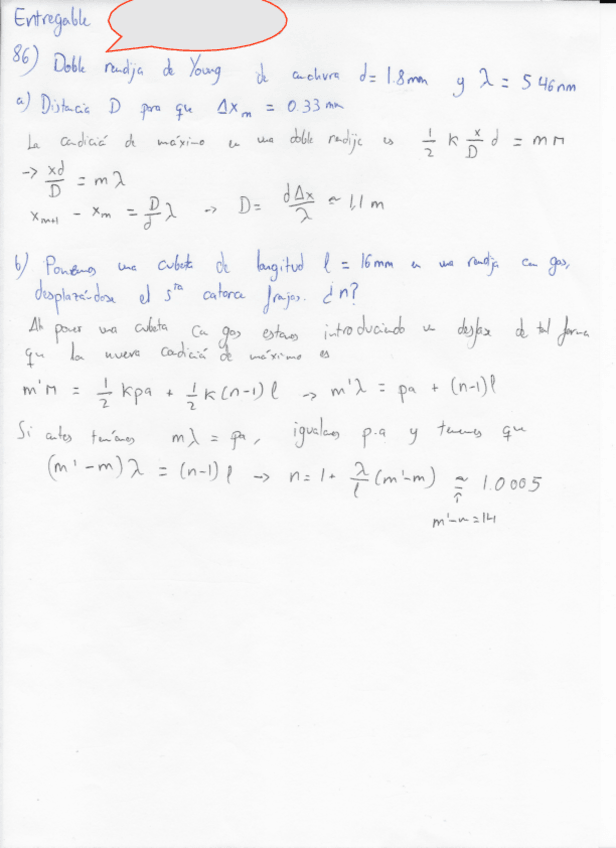 Entregable
86) Doble rendija de Young de anchura d = 1.8 mm y λ = 546 nm
a) Distancia D para que Δx_m = 0.33 mm
La condición de máximo en una doble rendija es 1/2 k x/D d = m π
→ xd/D = m λ
x_{m+1} - x_m = D/d λ → D = dΔx/λ ≃ 1,1 m
b) Ponemos una cubeta de longitud l = 16 mm en una rendija con gas,
desplazándose el s^ma catorce franjas. ¿n?
Al poner una cubeta con gas estamos introduciendo un desfase de tal forma
que la nueva condición de máximo es
m'π = 1/2 k p a + 1/2 k (n-1) l → m'λ = pa + (n-1) l
Si antes teníamos mλ = pa, igualamos p·a y tenemos que
(m' - m) λ = (n-1) l → n = 1 + λ/l (m' - m) ≃ 1.0005
↑
m' - m = 14